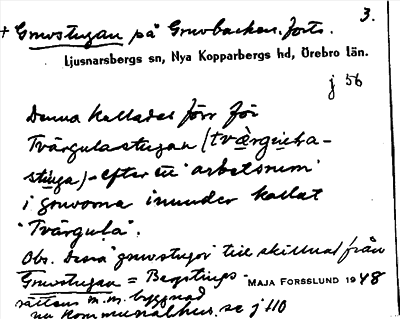 3.
+ Gruvstugan på Gruvbacken. forts.
Ljusnarsbergs sn, Nya Kopparbergs hd, Örebro län.
j 56
Denna kallades förr för
Tvärgulastugan (tværgu̇la-
stuga) - efter ett "arbetsrum"
i gruvorna inunder kallat
"Tvärgula".
Obs. Denna "gruvstuga" till skillnad från
Gruvstugan = Bergstings-
MAJA FORSSLUND 1948
rättens m.m. byggnad
nu Kommunalhus. se j 110